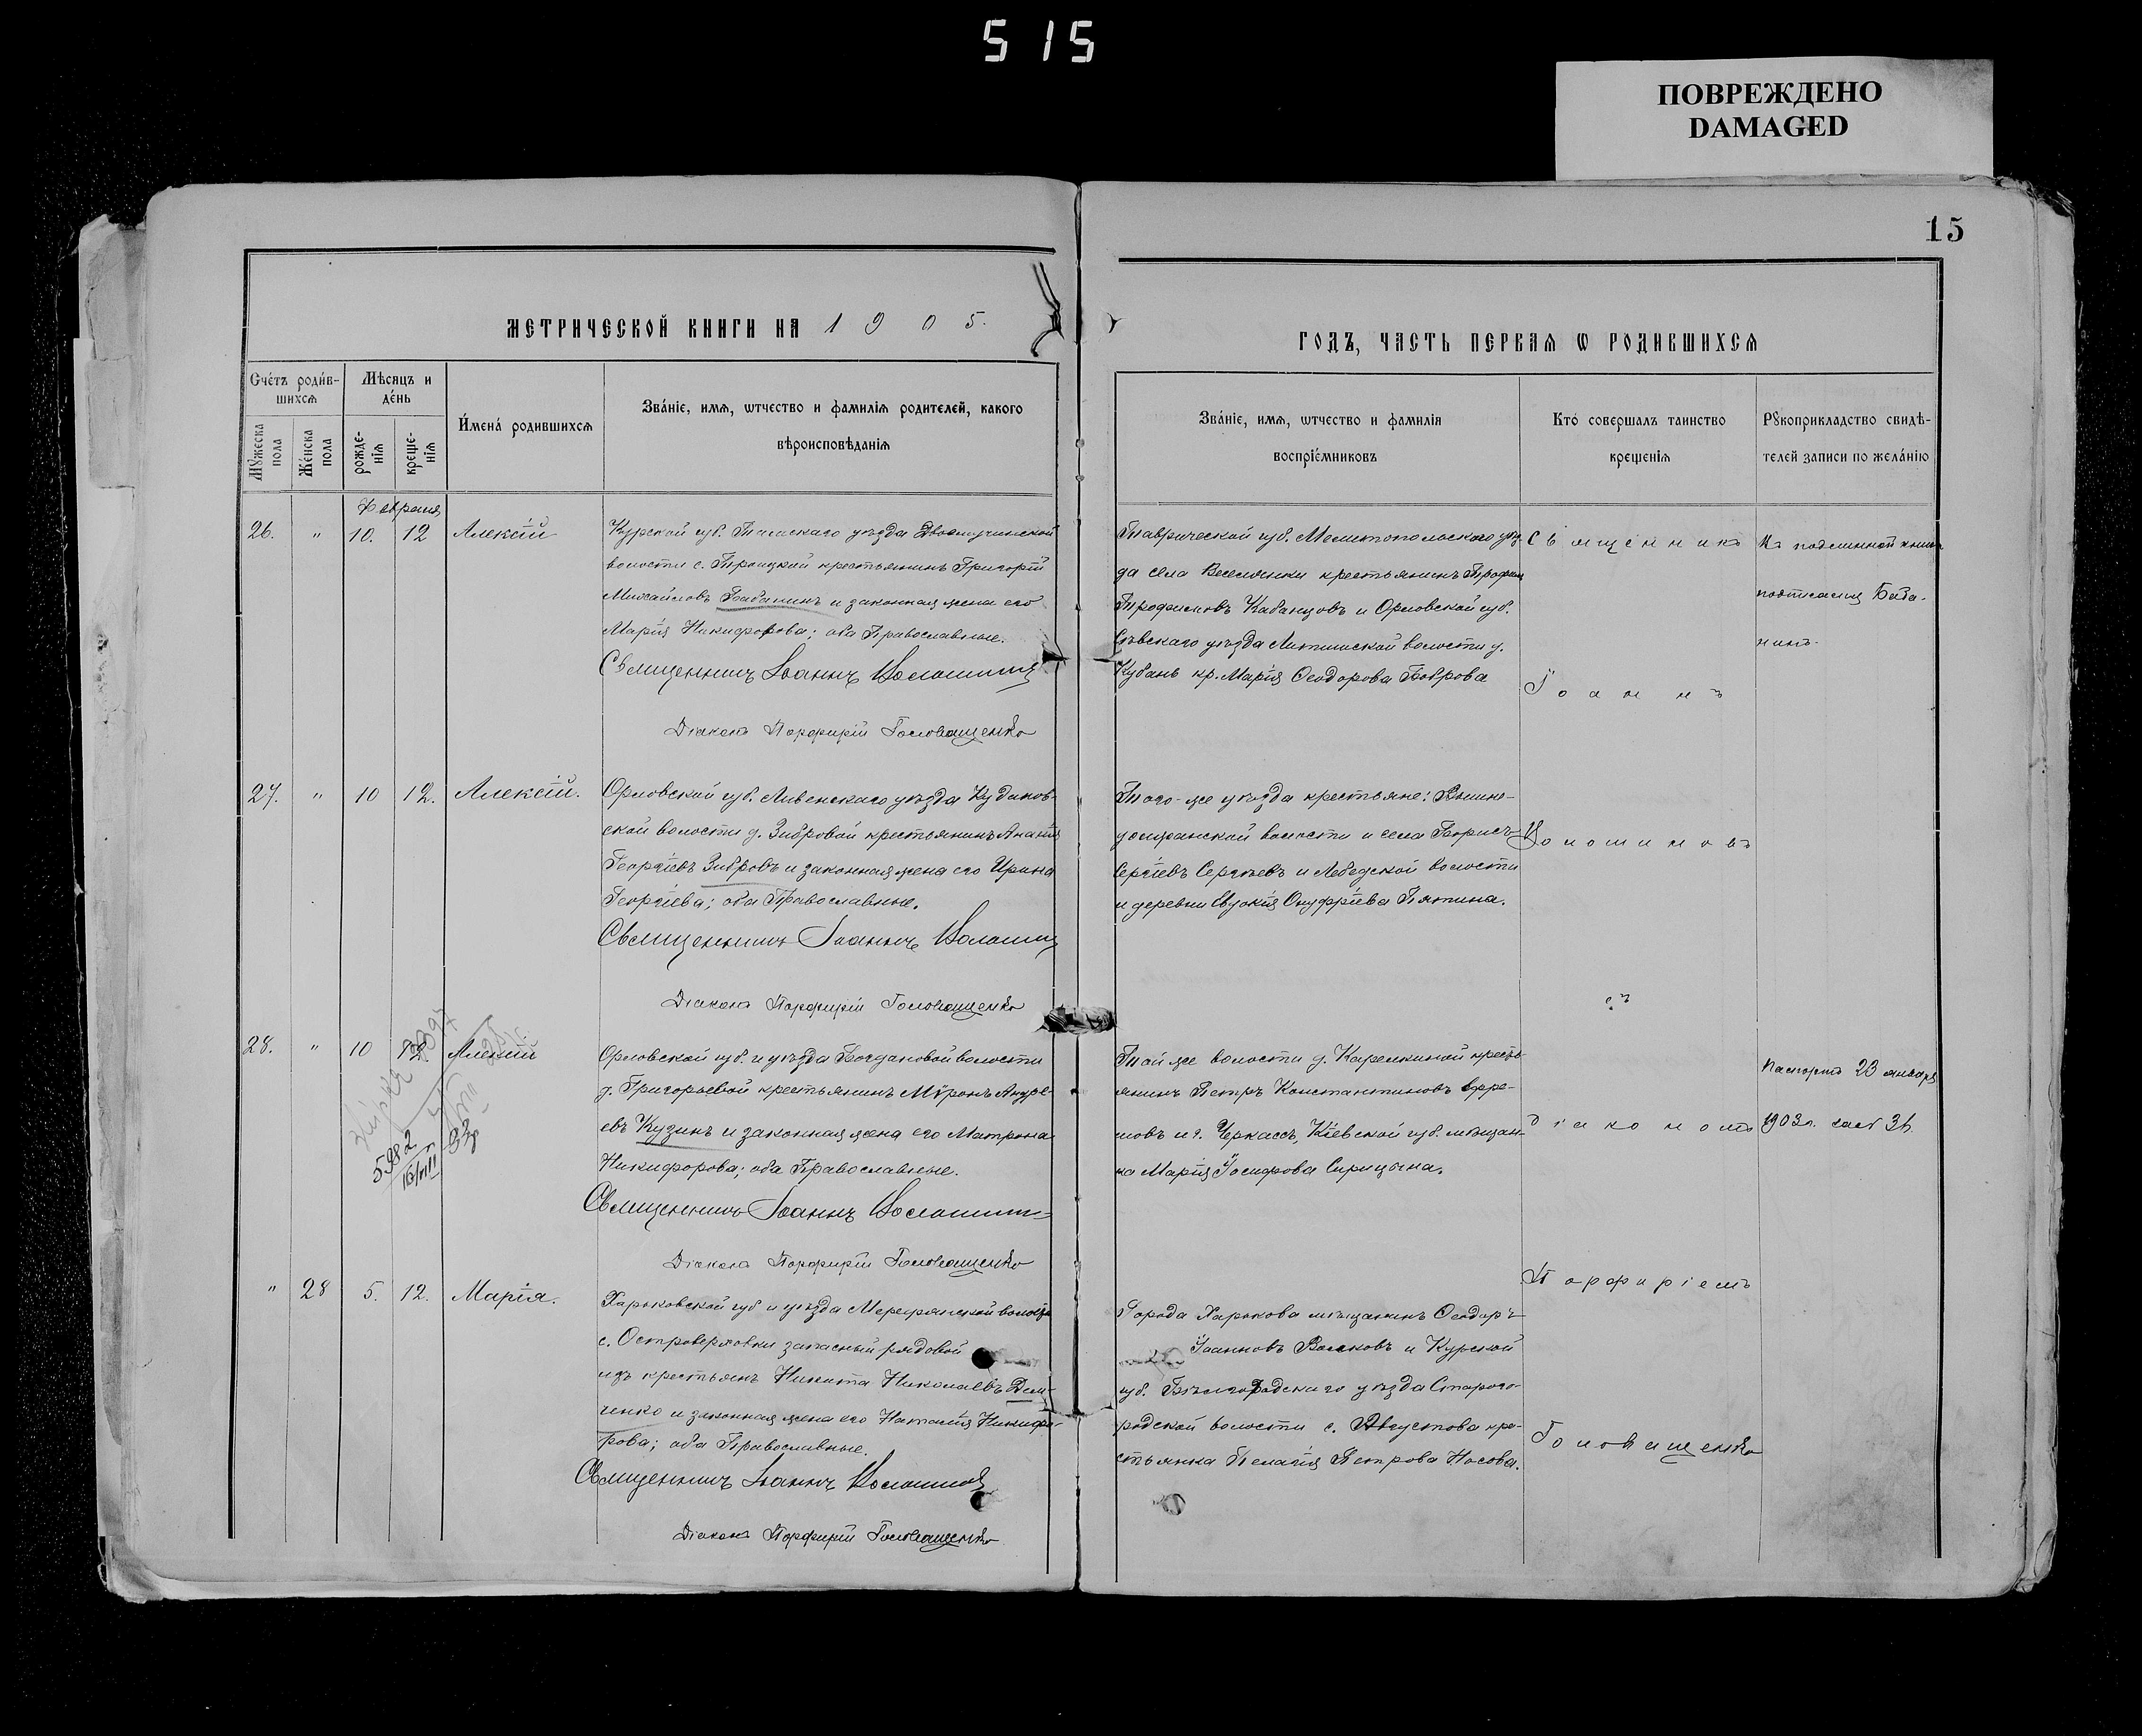 515
ПОВРЕЖДЕНО
DAMAGED
15
МЕТРИЧЕСКОЙ КНИГИ НА 1905.
ГОДЪ, ЧАСТЬ ПЕРВАѦ Ѡ РОДИВШИХСѦ
Счéтъ родив-
шихсѧ
Мꙋжеска пола
Жéнска пола
Мѣсяцъ и
дéнь
рожде-
нія
креще-
нія
И́мена́ родившихсѧ
Зва́ніе, имѧ, ѡтчество и фамилія родителей, какого
вѣроисповѣданія
Зва́ніе, имѧ, ѡтчество и фамилія
воспріéмниковъ
Кто́ совершалъ таинство
крещенія
Рꙋкоприкладство свидѣ-
телей записи по жела́нію
Февраля
26. " 10. 12 Алексій
Курской губ. уѣзда
волости с. Троицкой крестьянинъ Григорій
Михайловъ Бабанинъ и законная жена его
Марія Никифорова; оба Православные.
Священникъ Іоаннъ Волошиновъ
Діаконъ Порфирій Головащенко
Таврической губ. Мелитопольскаго уѣз-
да села Веселянки крестьянинъ Трофим
Трофимовъ Кабанцовъ и Орловской губ.
Сѣвскаго уѣзда волости д.
Кубань кр. Марія Ѳеодорова Боброва
Священникъ
Іоаннъ
Волошиновъ
съ
діакономъ
Порфиріемъ
Головащенко
Къ подлинной книге
подписался Баба-
нинъ.
27. " 10 12. Алексій.
Орловской губ. Ливенскаго уѣзда
ской волости д. Зибровой крестьянинъ Ананія
Георгіевъ Зибровъ и законная жена его Ирина
Георгіева; оба Православные.
Священникъ Іоаннъ Волошин
Діаконъ Порфирій Головащенко
Того-же уѣзда крестьяне:
волости и села Борисъ
Сергіевъ Сергѣевъ и Лебедской волости
и деревни Евдокія Онуфріева Пятина.
28. " 10 12 Алексій
5982
16/VIII
93
Орловской губ. и уѣзда Богдановой волости
д. Григорьевой крестьянинъ Мѵронъ Андре-
евъ Кузинъ и законная жена его Матрона
Никифорова; оба Православные.
Священникъ Іоаннъ Волошин
Діаконъ Порфирій Головащенко
Той же волости д. Карелкиной кресть-
янинъ Петръ Константиновъ Ефре-
мовъ и г. Черкассъ, Кіевской губ. мѣщан-
ка Марія Іосифова Сирицына.
Паспортъ 23 января
1903 г.
" 28 5. 12. Марія.
Харьковской губ и уѣзда Мерефянской волости
с. Островерховки запасный рядовой
изъ крестьянъ Никита Николаевъ Дем-
ченко и законная жена его Наталія Никифо-
рова; оба Православные.
Священникъ Іоаннъ Волошинов
Діаконъ Порфирій Головащенко
Города Харькова мѣщанинъ Ѳеодоръ
Іоанновъ Волковъ и Курской
губ. Бѣлгородскаго уѣзда Старого-
родской волости с. Августова кре-
стьянка Пелагія Петрова Носова.